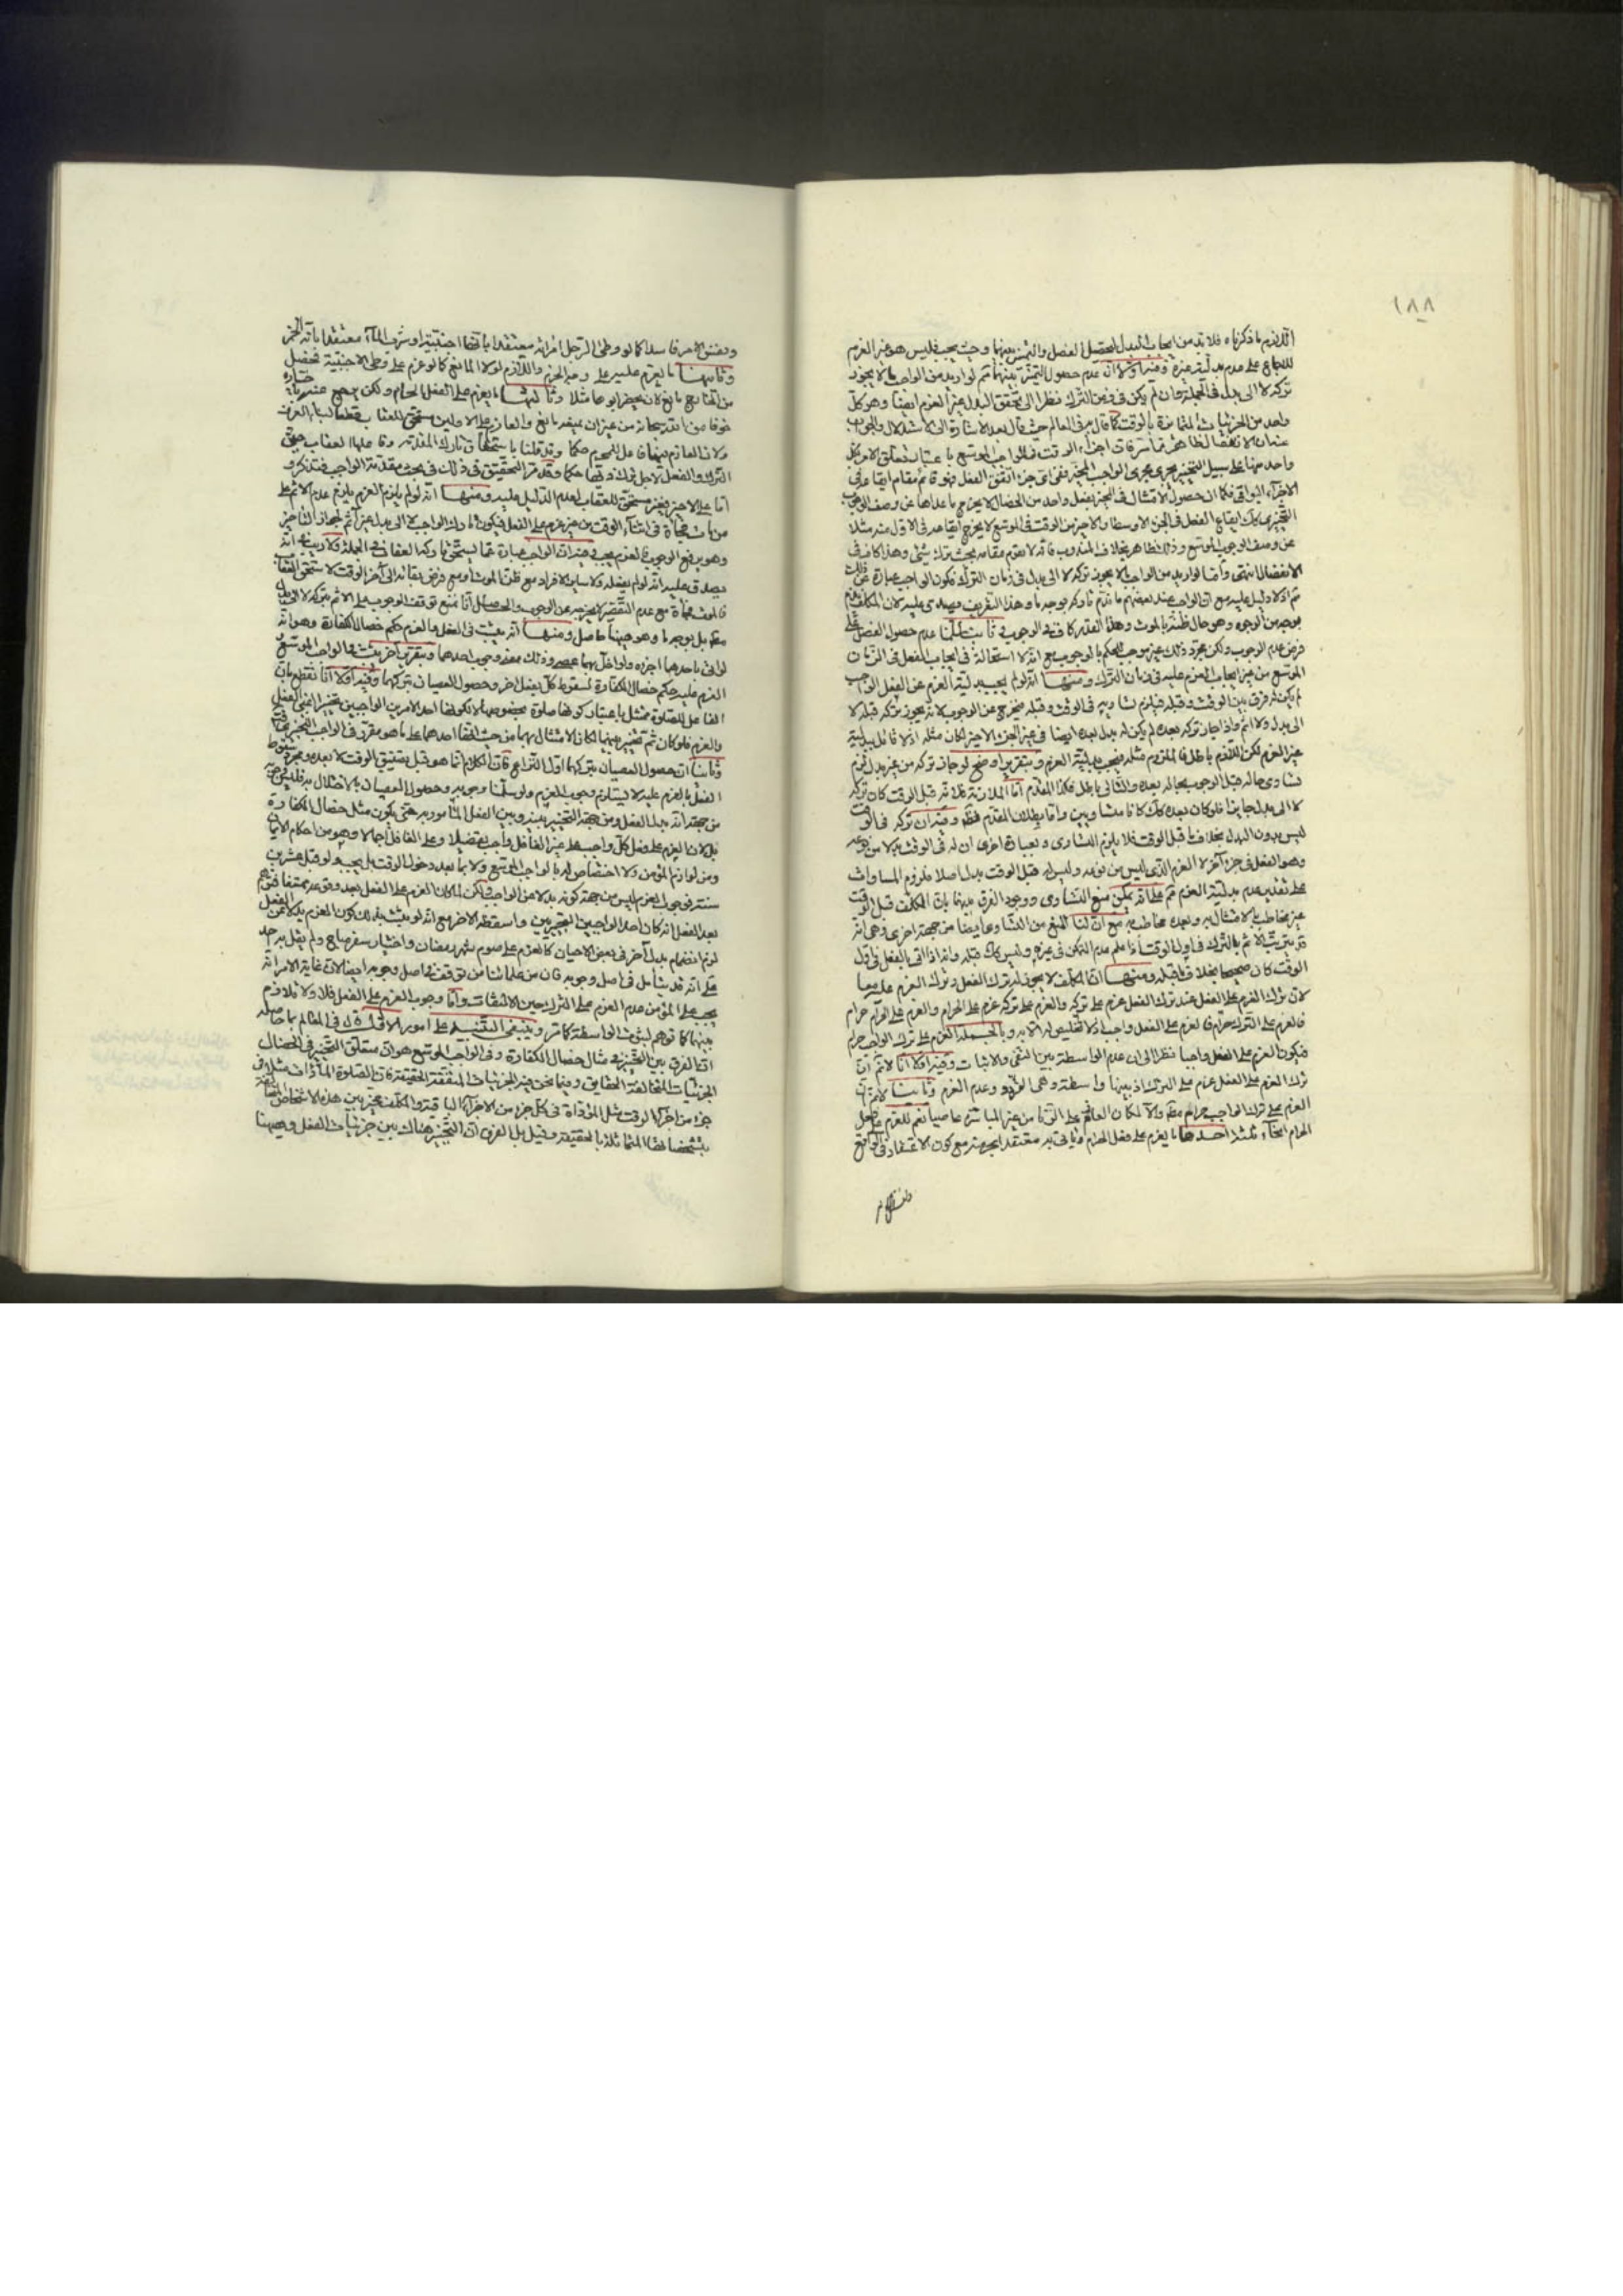 ١٨٨
اللازم ما ذكرناه فلا بد من ايجاب البدل ليحصل الفصل والتميز بينهما وحيث يجب فليس هو غير العزم
للاجماع على عدم بدلية غيره وفيه اولا ان عدم حصول التميز بينهما ثم لو اريد من الواجب ما لا يجوز
تركه لا الى بدل في الجملة وان لم يكن في زمن الترك نظرا الى تحقق البدل غير العزم ايضا وهو كل
واحد من الجزئيات المتمايزة بالوقت كما قال في العالم حيث قال بعد الاشارة الى الاستدلال والجواب
عنه ان الانفصال ظاهر مما مر فان اجزاء الوقت في الواجب الموسع باعتبار تعلق الامر بكل
واحد منها على سبيل التخيير يجري مجرى الواجب المخير ففي اي جزء اتفق الفعل فهو قائم مقام ايقاعه في
الاجزاء البواقي فكما ان حصول الامتثال في المخير بفعل واحد من الخصال لا يخرج ما عداها عن وصف الوجوب
التخييري كذلك ايقاع الفعل في الجزء الاوسط او الاخير من الوقت في الموسع لا يخرج ايقاعه في الاول منه مثلا
عن وصف الوجوب الموسع وذلك ظاهر بخلاف المندوب فانه لا يقوم مقامه حيث يترك شئ وهذا كاف في
الانفصال انتهى وأما لو اريد من الواجب ما لا يجوز تركه لا الى بدل في زمان الترك فكون الواجب عبارة عن ذلك
ثم اذ لا دليل عليه مع ان الواجب عند بعضهم ما يذم تاركه بوجه ما وهذا التعريف يصدق عليه لان المكلف يذم
بوجه من الوجوه وهو حال ظنه بالموت وهذا القدر كاف في الوجوب وثانيا سلمنا عدم حصول الفصل على
فرض عدم الوجوب ولكن مجرد ذلك غير موجب للحكم بالوجوب مع انه لا استحالة في ايجاب الفعل في الزمان
الموسع من غير ايجاب العزم عليه في زمان الترك ومنها انه لو لم يجب بدلية العزم عن الفعل الواجب
لم يكن فرق بين الوقت وقبله فيلزم تساويه في الوقت وقبله فيخرج عن الوجوب لانه يجوز تركه قبله لا
الى بدل ولا اثم واذا جاز تركه بعده لم يكن له بدل بعده ايضا في غير الجزء الاخير لكان مثله اذ لا قائل ببدلية
غير العزم لكن اللازم باطل فالملزوم مثله فيجب بدلية العزم وبتقرير اوضح لو جاز تركه من غير بدل لزم
تساوي حاله قبل الوجوب بحاله بعده والتالي باطل فكذا المقدم أما الملازمة فلانه قبل الوقت كان تركه
لا الى بدل جايزا فلو كان بعده كذلك كانا متساويين واما بطلان المقدم فظ وفيه ان تركه في الوقت
ليس بدون البدل بخلاف ما قبل الوقت فلا يلزم التساوي وبعبارة اخرى ان له في الوقت بدلا من نوعه
وهو الفعل في جزء آخر لا العزم الذي ليس من نوعه وليس له قبل الوقت بدل اصلا فلزوم المساوات
على تقدير عدم بدلية العزم ثم على انه يمكن منع التساوي ووجود الفرق بينهما بان المكلف قبل الوقت
غير مخاطب بالامتثال به وبعده مخاطب به مع ان لنا المنع من التساوي ايضا من جهة اخرى وهي انه
قد يترتب الاثم بالترك في اول الوقت اذا علم عدم التمكن في غيره وليس كذلك قبله وانه اذا اتى بالفعل في اول
الوقت كان صحيحا بخلاف ما قبله ومنها ان المكلف لا يجوز له ترك الفعل وترك العزم عليه معا
لان ترك العزم على الفعل عند ترك الفعل عزم على تركه والعزم على تركه عزم على الحرام والعزم على الحرام حرام
فالعزم على الترك حرام فالعزم على الفعل واجب اذ لا تخليص له الا به وبالجملة العزم على ترك الواجب حرام
فيكون العزم على الفعل واجبا نظرا الى ان عدم الواسطة بين النفي والاثبات وفيه اولا انا لا نم ان
ترك العزم على الفعل عزم على الترك اذ بينهما واسطة وهي التردد وعدم العزم وثانيا لا نم ان
العزم على ترك الواجب حرام مطلقا والا لكان العازم على الزنا من غير المباشرة عاصيا نعم للعزم على فعل
الحرام انحاء ثلثة احدها ما يعزم على فعل الحرام ويأتي به معتقدا بحرمته مع كون الاعتقاد في الواقع
ونفس الامر فاسدا كما لو وطئ الرجل امرأته معتقدا بأنها اجنبية او شرب الماء معتقدا بانه الخمر
وثانيها ما يعزم عليه على وجه الجزم واللازم لولا المانع كما لو عزم على وطئ الاجنبية فحصل
من الخارج مانع لان حضر ابوها مثلا وثالثها ما يعزم على الفعل الحرام ولكن يرجع عنه باختياره
خوفا من الله سبحانه من غير ان يمنعه مانع والعازم على الاولين مستحق للعقاب قطعا لبناء العرف
ولان العازم فيهما فاعل للمحرم حكما وقد قلنا باستحقاق تارك المقدمة وفاعلها العقاب حتى
الترك والفعل لاجل ترك ذيها حكما وقد مر التحقيق في ذلك في بحث مقدمة الواجب فتذكر و
أما على الاخير فغير مستحق للعقاب لعدم الدليل عليه ومنها انه لو لم يلزم العزم يلزم عدم الاثم على
من مات فجأة في اثناء الوقت من غير عزم على الفعل فيكون تارك الواجب لا الى بدل غير آثم لجواز التاخير
وهو يرفع الوجوب فالعزم يجب وفيه ان الواجب عبارة عما يستحق تاركه العقاب في الجملة ولا ريب في انه
يصدق عليه انه لو لم يفعله في ساير الافراد مع ظن الموت او مع فرض بقائه الى آخر الوقت لاستحق العقاب
فالموت فجأة مع عدم التقصير لا يخرجه عن الوجوب والحاصل انا نمنع توقف الوجوب على الاثم بتركه لا الى بدل
مطلقا بل بوجه ما وهو ههنا حاصل ومنها انه يثبت في الفعل والعزم حكم خصال الكفارة وهو انه
لو اتى باحدهما اجزء ولو اخل بهما عصى وذلك معنى وجوب احدهما وبتقرير آخر يثبت في الواجب الموسع
العزم عليه حكم خصال الكفارة لسقوط كل بفعل الاخر وحصول العصيان بتركهما وفيه اولا انا نقطع بان
الفاعل للصلوة ممتثل باعتبار كونها صلوة بخصوصها لا لكونها احد الامرين الواجبين تخييرا اعني الفعل
والعزم فلو كان ثم تخيير بينهما لكان الامتثال بهما من حيث انها احدهما على ما هو مقرر في الواجب التخييري
وثانيا ان حصول العصيان بتركهما اول النزاع فان الكلام انما هو قبل تضييق الوقت لا بعده ومجرد سقوط
الفعل بالعزم عليه لا يستلزم وجوب العزم ولو سلمنا وجوبه وحصول العصيان بالاخلال به فليس
من جهة انه بدل الفعل ومن جهة التخيير بينه وبين الفعل المأمور به حتى يكون مثل خصال الكفارة
بل لان العزم على فعل كل واجب على غير الغافل واجب تفصيلا وعلى الغافل اجمالا وهو من احكام الايمان
ومن لوازم المؤمن ولا اختصاص له بالواجب الموسع ولا بما بعد دخول الوقت بل يجب ولو قبل عشرين
سنة فوجوب العزم ليس من جهة كونه بدلا من الواجب ولكن لما كان العزم على الفعل بعد وقوعه ممتنعا فتوهم
بعد الفعل انه كان احد الواجبين التخييريين واسقطه الاخر مع انه لو يثبت بذلك كون العزم بدلا عن الفعل
لزم انضمام بدل آخر في بعض الاحيان كالعزم على صوم شهر رمضان واختيار سفر مباح ولم يقل به احد
على انه قد يتأمل في اصل وجوبه فان من علمائنا من توقف في اصل وجوبه ايضا لان غاية الامر انه
يجب على المؤمن عدم العزم على الترك حين الالتفات وأما وجوب العزم على الفعل فلا ولا تلازم
بينهما كما توهم لثبوت الواسطة كما مر وينبغي التنبيه على امور الاول قال في المعالم بما حاصله
ان الفرق بين التخيير في مثال خصال الكفارة وفي الواجب الموسع هو ان متعلق التخيير في الخصال
الجزئيات المتخالفة الحقايق وفيما نحن فيه الجزئيات المتفقة الحقيقة فان الصلوة المأداة مثلا في
جزء من اجزاء الوقت مثل المؤداة في كل جزء من الاجزاء الباقية والمكلف مخير بين هذه الاشخاص المتخالفة
بتشخصاتها المتماثلة بالحقيقة وقيل بل الفرق ان التخيير هناك بين جزئيات الفعل وههنا